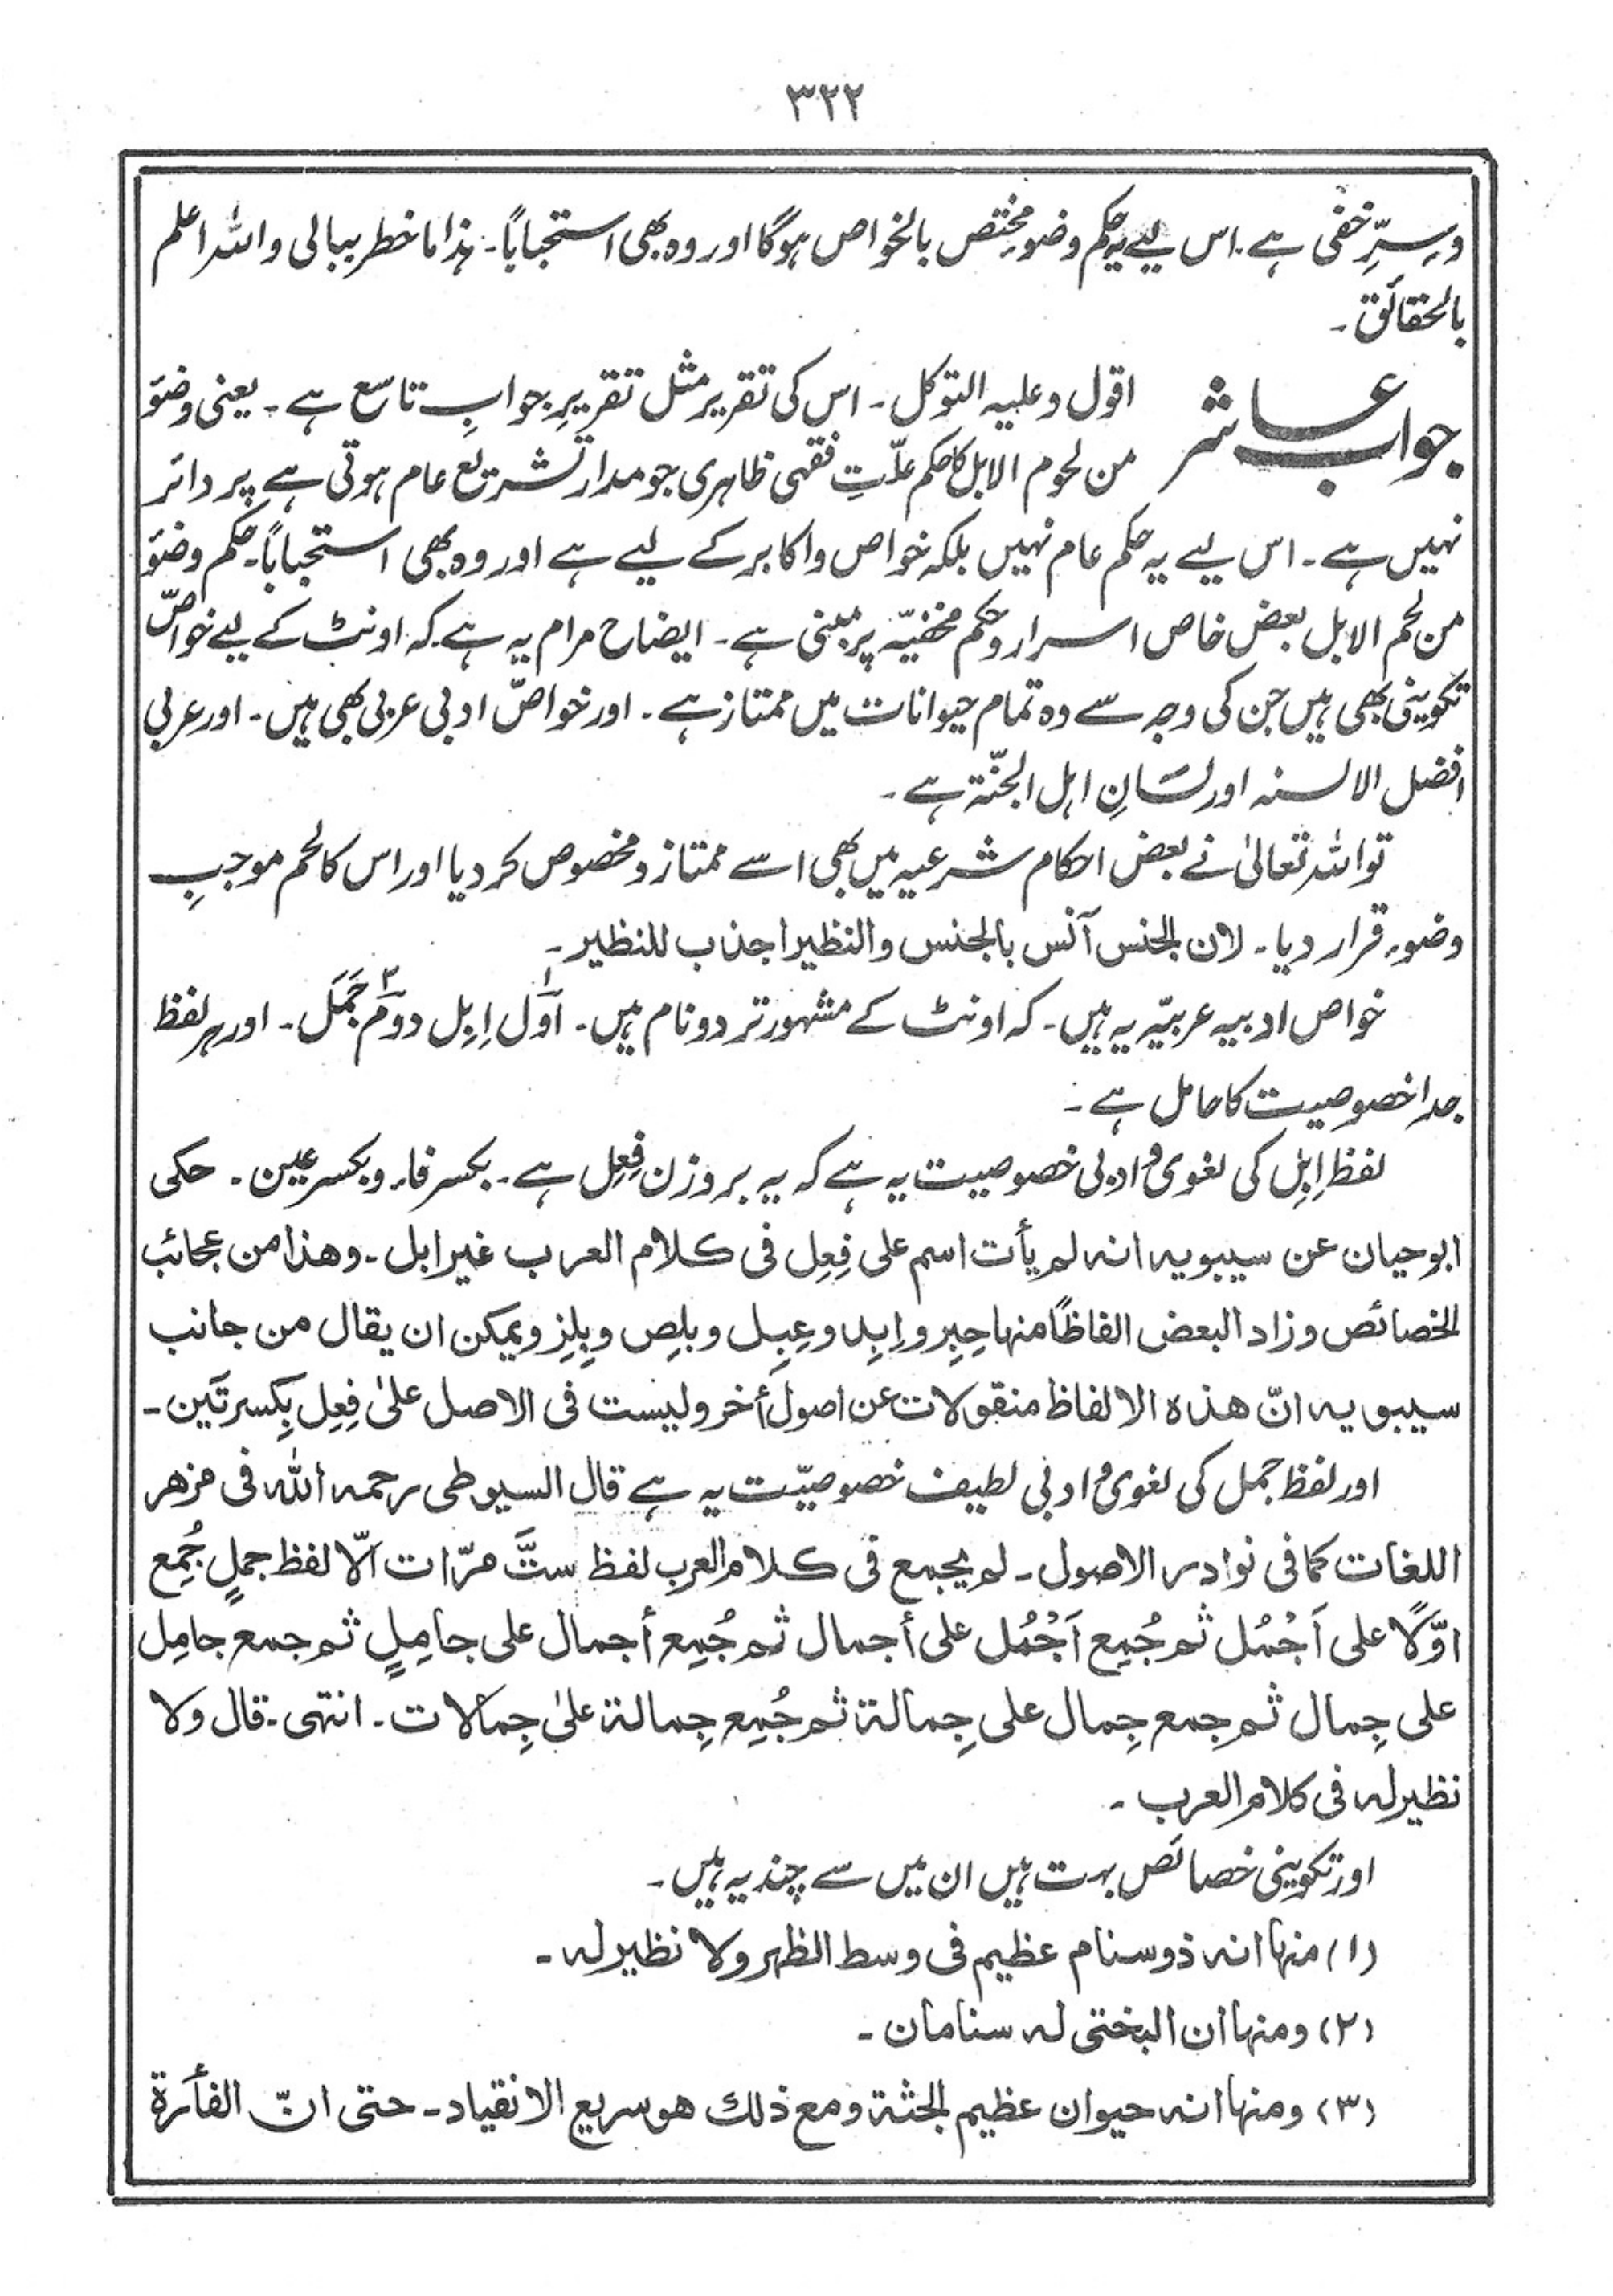 ۳۲۲
و سِرِّ خفی ہے۔ اس لیے یہ حکم وضوء مختص بالخواص ہوگا اور وہ بھی استحباباً۔ ہذا ما خطر ببالی واللہ اعلم
بالحقائق۔
جواب عاشر
اقول وعلیہ التوکل۔ اس کی تقریر مثل تقریرِ جوابِ تاسع ہے۔ یعنی وضوَ
من لحوم الابل کا حکم علّتِ فقہی ظاہری جو مدار تشریع عام ہوتی ہے پر دائر
نہیں ہے۔ اس لیے یہ حکم عام نہیں بلکہ خواص و اکابر کے لیے ہے اور وہ بھی استحباباً۔ حکم وضوَ
من لحم الابل بعض خاص اسرار و حکم مخفیّہ پر مبنی ہے۔ ایضاح مرام یہ ہے کہ اونٹ کے لیے خواصّ
تکوینی بھی ہیں جن کی وجہ سے وہ تمام حیوانات میں ممتاز ہے۔ اور خواصّ ادبی عربی بھی ہیں۔ اور عربی
افضل الالسنہ اور لسَانِ اہل الجنّۃ ہے۔
تو اللہ تعالیٰ نے بعض احکام شرعیہ میں بھی اسے ممتاز و مخصوص کر دیا اور اس کا لحم موجبِ
وضوء قرار دیا۔ لان الجنس آنس بالجنس والنظیر اجذب للنظیر۔
خواص ادبیہ عربیّہ یہ ہیں۔ کہ اونٹ کے مشہور تر دو نام ہیں۔ اوّل ۱ اِبِل دوم ۲ جَمَل۔ اور ہر لفظ
جدا خصوصیت کا حامل ہے۔
لفظ اِبِل کی لغوی و ادبی خصوصیت یہ ہے کہ یہ بروزن فِعِل ہے۔ بکسر فاء و بکسر عین۔ حکی
ابو حیان عن سیبویہ انہ لم یأت اسم علی فِعِل فی کلام العرب غیر ابل۔ وھذا من عجائب
الخصائص وزاد البعض الفاظاً منہا حِبِر و اِبِد و عِبِل و بلِص و بِلِز و یمکن ان یقال من جانب
سیبویہ انّ ھذہ الالفاظ منقولات عن اصول أُخر ولیست فی الاصل علیٰ فِعِل بِکسرتَین۔
اور لفظ جمل کی لغوی و ادبی لطیف خصوصیّت یہ ہے قال السیوطی رحمہ اللہ فی مزھر
اللغات کما فی نوادر الاصول۔ لم یجمع فی کلام العرب لفظ ستَّ مرّات الّا لفظ جملٍ جُمِع
اوّلًا علی اَجْمُل ثم جُمِع اَجْمُل علی أجمال ثم جُمِع أجمال علی جامِلٍ ثم جمع جامِل
علی جِمال ثم جمع جِمال علی جِمالۃ ثم جُمِع جِمالۃ علیٰ جِمالات۔ انتہی۔ قال ولا
نظیر لہ فی کلام العرب۔
اور تکوینی خصائص بہت ہیں ان میں سے چند یہ ہیں۔
(۱) منہا انہ ذو سنام عظیم فی وسط الظہر ولا نظیر لہ۔
(۲) ومنہا ان البختی لہ سنامان۔
(۳) ومنہا انہ حیوان عظیم الجثۃ ومع ذلک ھو سریع الانقیاد۔ حتی انّ الفأرۃ